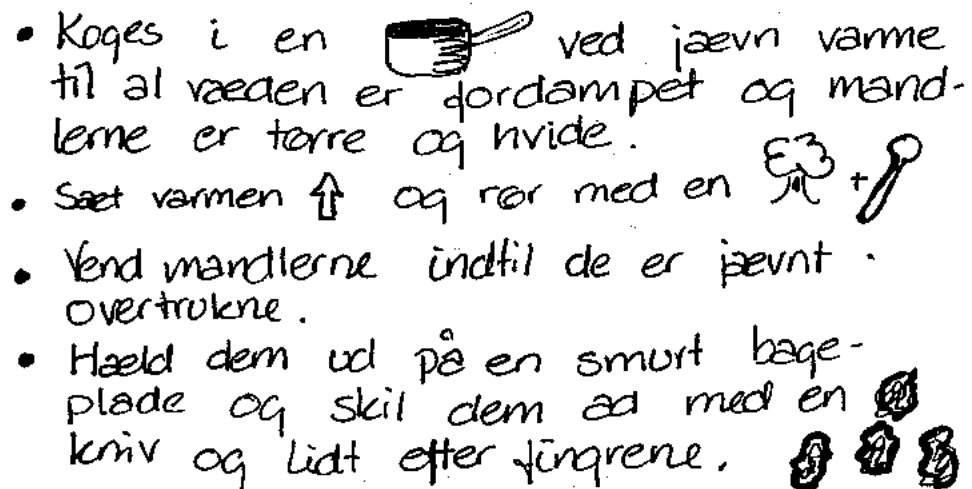 • Koges i en ved jævn varme
til al væden er fordampet og mand-
lerne er tørre og hvide.
• Sæt varmen ⇧ og rør med en +
• Vend mandlerne indtil de er jævnt
overtrukne.
• Hæld dem ud på en smurt bage-
plade og skil dem ad med en
kniv og lidt efter fingrene.